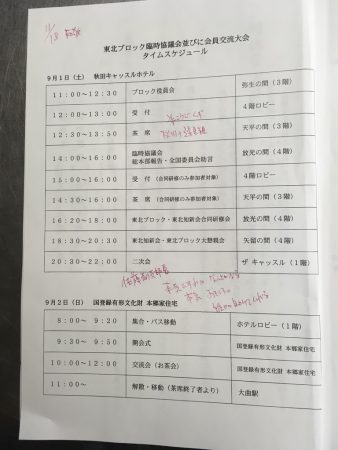 11/18
東北ブロック臨時協議会並びに会員交流大会
タイムスケジュール
9月1日（土） 秋田キャッスルホテル
11:00～12:30 ブロック役員会 弥生の間（3階）
12:00～13:00 受 付 4階ロビー
12:30～13:50 茶 席 天平の間（4階）
14:00～16:00 臨時協議会 総本部報告・全国委員会助言 放光の間（4階）
15:00～16:00 受 付 （合同研修のみ参加者対象） 4階ロビー
14:30～16:00 茶 席 （合同研修のみ参加者対象） 天平の間（4階）
16:20～18:00 東北ブロック・東北知新会合同研修会 放光の間（4階）
18:30～20:30 東北知新会・東北ブロック大懇親会 矢留の間（4階）
20:30～22:30 二次会 ザ キャッスル（1階）
9月2日（日） 国登録有形文化財 本郷家住宅
8:00～ 9:20 集合・バス移動 ホテルロビー（1階）
9:30～ 9:50 開会式 国登録有形文化財 本郷家住宅
10:00～12:00 交流会（お茶会） 国登録有形文化財 本郷家住宅
11:00～ 解散・移動（茶席終了者より） 大曲駅